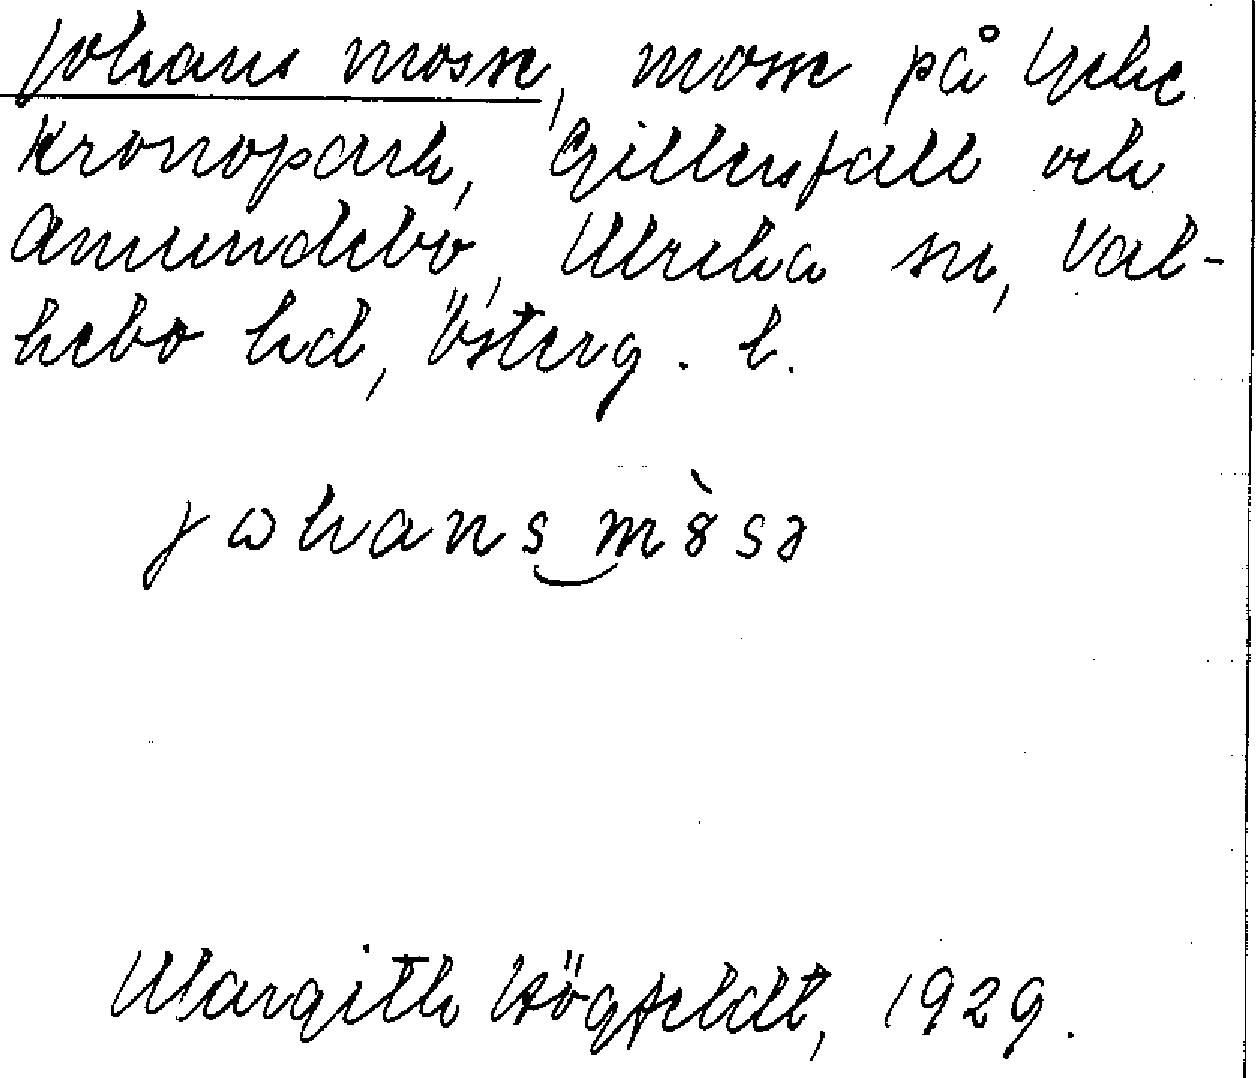 Johans mosse, mosse på Yxhe
Kronopark, Gillersfall och
Amundebo, Ulrika sn, Val-
kebo hd, Österg. l.
johans mòsə
Margith Högfeldt, 1929.